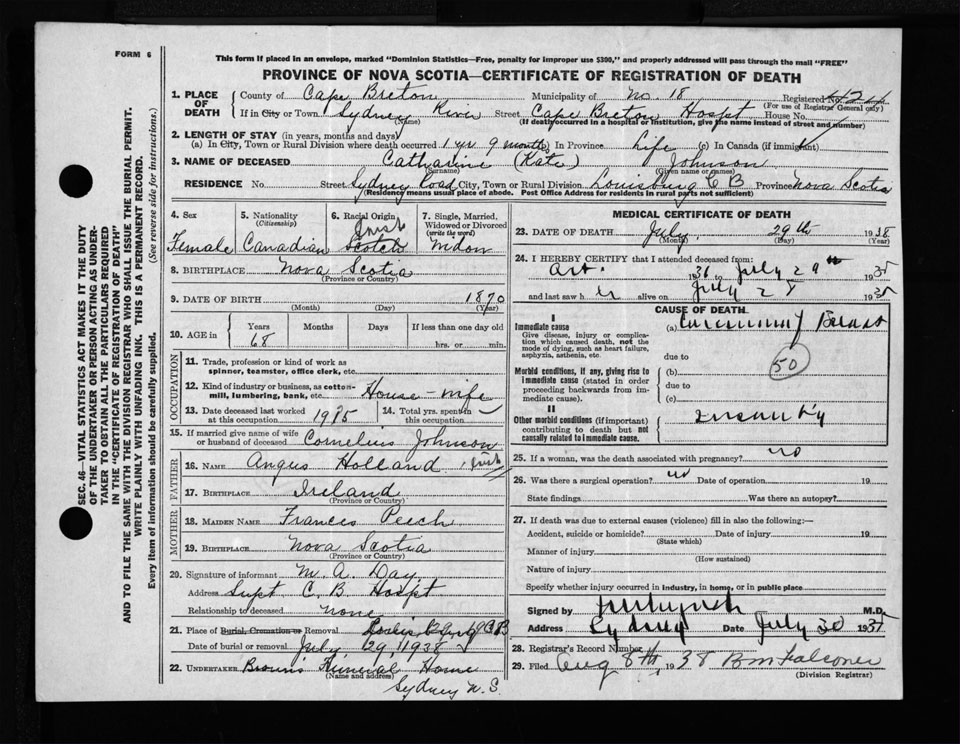 FORM 6
This form if placed in an envelope, marked "Dominion Statistics—Free, penalty for improper use $300," and properly addressed will pass through the mail "FREE"
PROVINCE OF NOVA SCOTIA—CERTIFICATE OF REGISTRATION OF DEATH
1. PLACE OF DEATH
County of Cape Breton Municipality of No. 18 Registered No.
(For use of Registrar General only)
If in City or Town Sydney River Street Cape Breton Hospt House No.
(Name) (If death occurred in a hospital or institution, give the name instead of street and number)
2. LENGTH OF STAY (in years, months and days)
(a) In City, Town or Rural Division where death occurred 1 yr 9 months In Province Life (c) In Canada (if immigrant)
3. NAME OF DECEASED Catharine (Kate) Johnson
(Surname) (Given name or names)
RESIDENCE No. Street Sydney Road City, Town or Rural Division Louisburg C B Province Nova Scotia
(Residence means usual place of abode. Post Office Address for residents in rural parts not sufficient)
4. Sex Female
5. Nationality (Citizenship) Canadian
6. Racial Origin Irish Scotch
7. Single, Married, Widowed or Divorced (write the word) Widow
8. BIRTHPLACE Nova Scotia
(Province or Country)
9. DATE OF BIRTH 1870
(Month) (Day) (Year)
10. AGE in Years Months Days If less than one day old
68 hrs. or min.
OCCUPATION
11. Trade, profession or kind of work as spinner, teamster, office clerk, etc.
12. Kind of industry or business, as cotton-mill, lumbering, bank, etc. House-wife
13. Date deceased last worked at this occupation 1935
14. Total yrs. spent in this occupation
15. If married give name of wife or husband of deceased Cornelius Johnson
FATHER
16. NAME Angus Holland Irish
17. BIRTHPLACE Ireland
(Province or Country)
MOTHER
18. MAIDEN NAME Frances Peech
19. BIRTHPLACE Nova Scotia
(Province or Country)
20. Signature of informant M. A. Day
Address Supt C. B. Hospt
Relationship to deceased none
21. Place of Burial, Cremation or Removal
Date of burial or removal July 29, 1938
22. UNDERTAKER Brown's Funeral Home
(Name and address)
Sydney N. S.
MEDICAL CERTIFICATE OF DEATH
23. DATE OF DEATH July 29th 1938
(Month) (Day) (Year)
24. I HEREBY CERTIFY that I attended deceased from:
Oct. 1936 to July 29th 1938
and last saw her alive on July 28 1938
CAUSE OF DEATH
I
Immediate cause
Give disease, injury or complication which caused death, not the mode of dying, such as heart failure, asphyxia, asthenia, etc.
(a) Carcinoma of Breast
due to
Morbid conditions, if any, giving rise to immediate cause (stated in order proceeding backwards from immediate cause).
(b) 50
due to
(c)
II
Other morbid conditions (if important) contributing to death but not causally related to immediate cause.
Insanity
25. If a woman, was the death associated with pregnancy? no
26. Was there a surgical operation? no Date of operation 19
State findings Was there an autopsy?
27. If death was due to external causes (violence) fill in also the following:—
Accident, suicide or homicide? Date of injury 19
(State which)
Manner of injury
(How sustained)
Nature of injury
Specify whether injury occurred in industry, in home, or in public place
Signed by M.D.
Address Sydney Date July 30 1938
28. Registrar's Record Number
29. Filed Aug 8th, 1938 B M Falconer
(Division Registrar)
SEC. 46—VITAL STATISTICS ACT MAKES IT THE DUTY
OF THE UNDERTAKER OR PERSON ACTING AS UNDER-
TAKER TO OBTAIN ALL THE PARTICULARS REQUIRED
IN THE "CERTIFICATE OF REGISTRATION OF DEATH"
AND TO FILE THE SAME WITH THE DIVISION REGISTRAR WHO SHALL ISSUE THE BURIAL PERMIT.
WRITE PLAINLY WITH UNFADING INK. THIS IS A PERMANENT RECORD.
Every item of information should be carefully supplied. (See reverse side for instructions.)